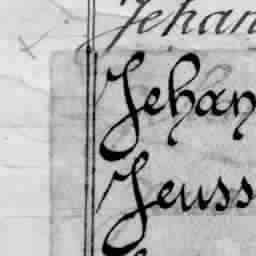 Jehan
Jehan
Jeuss